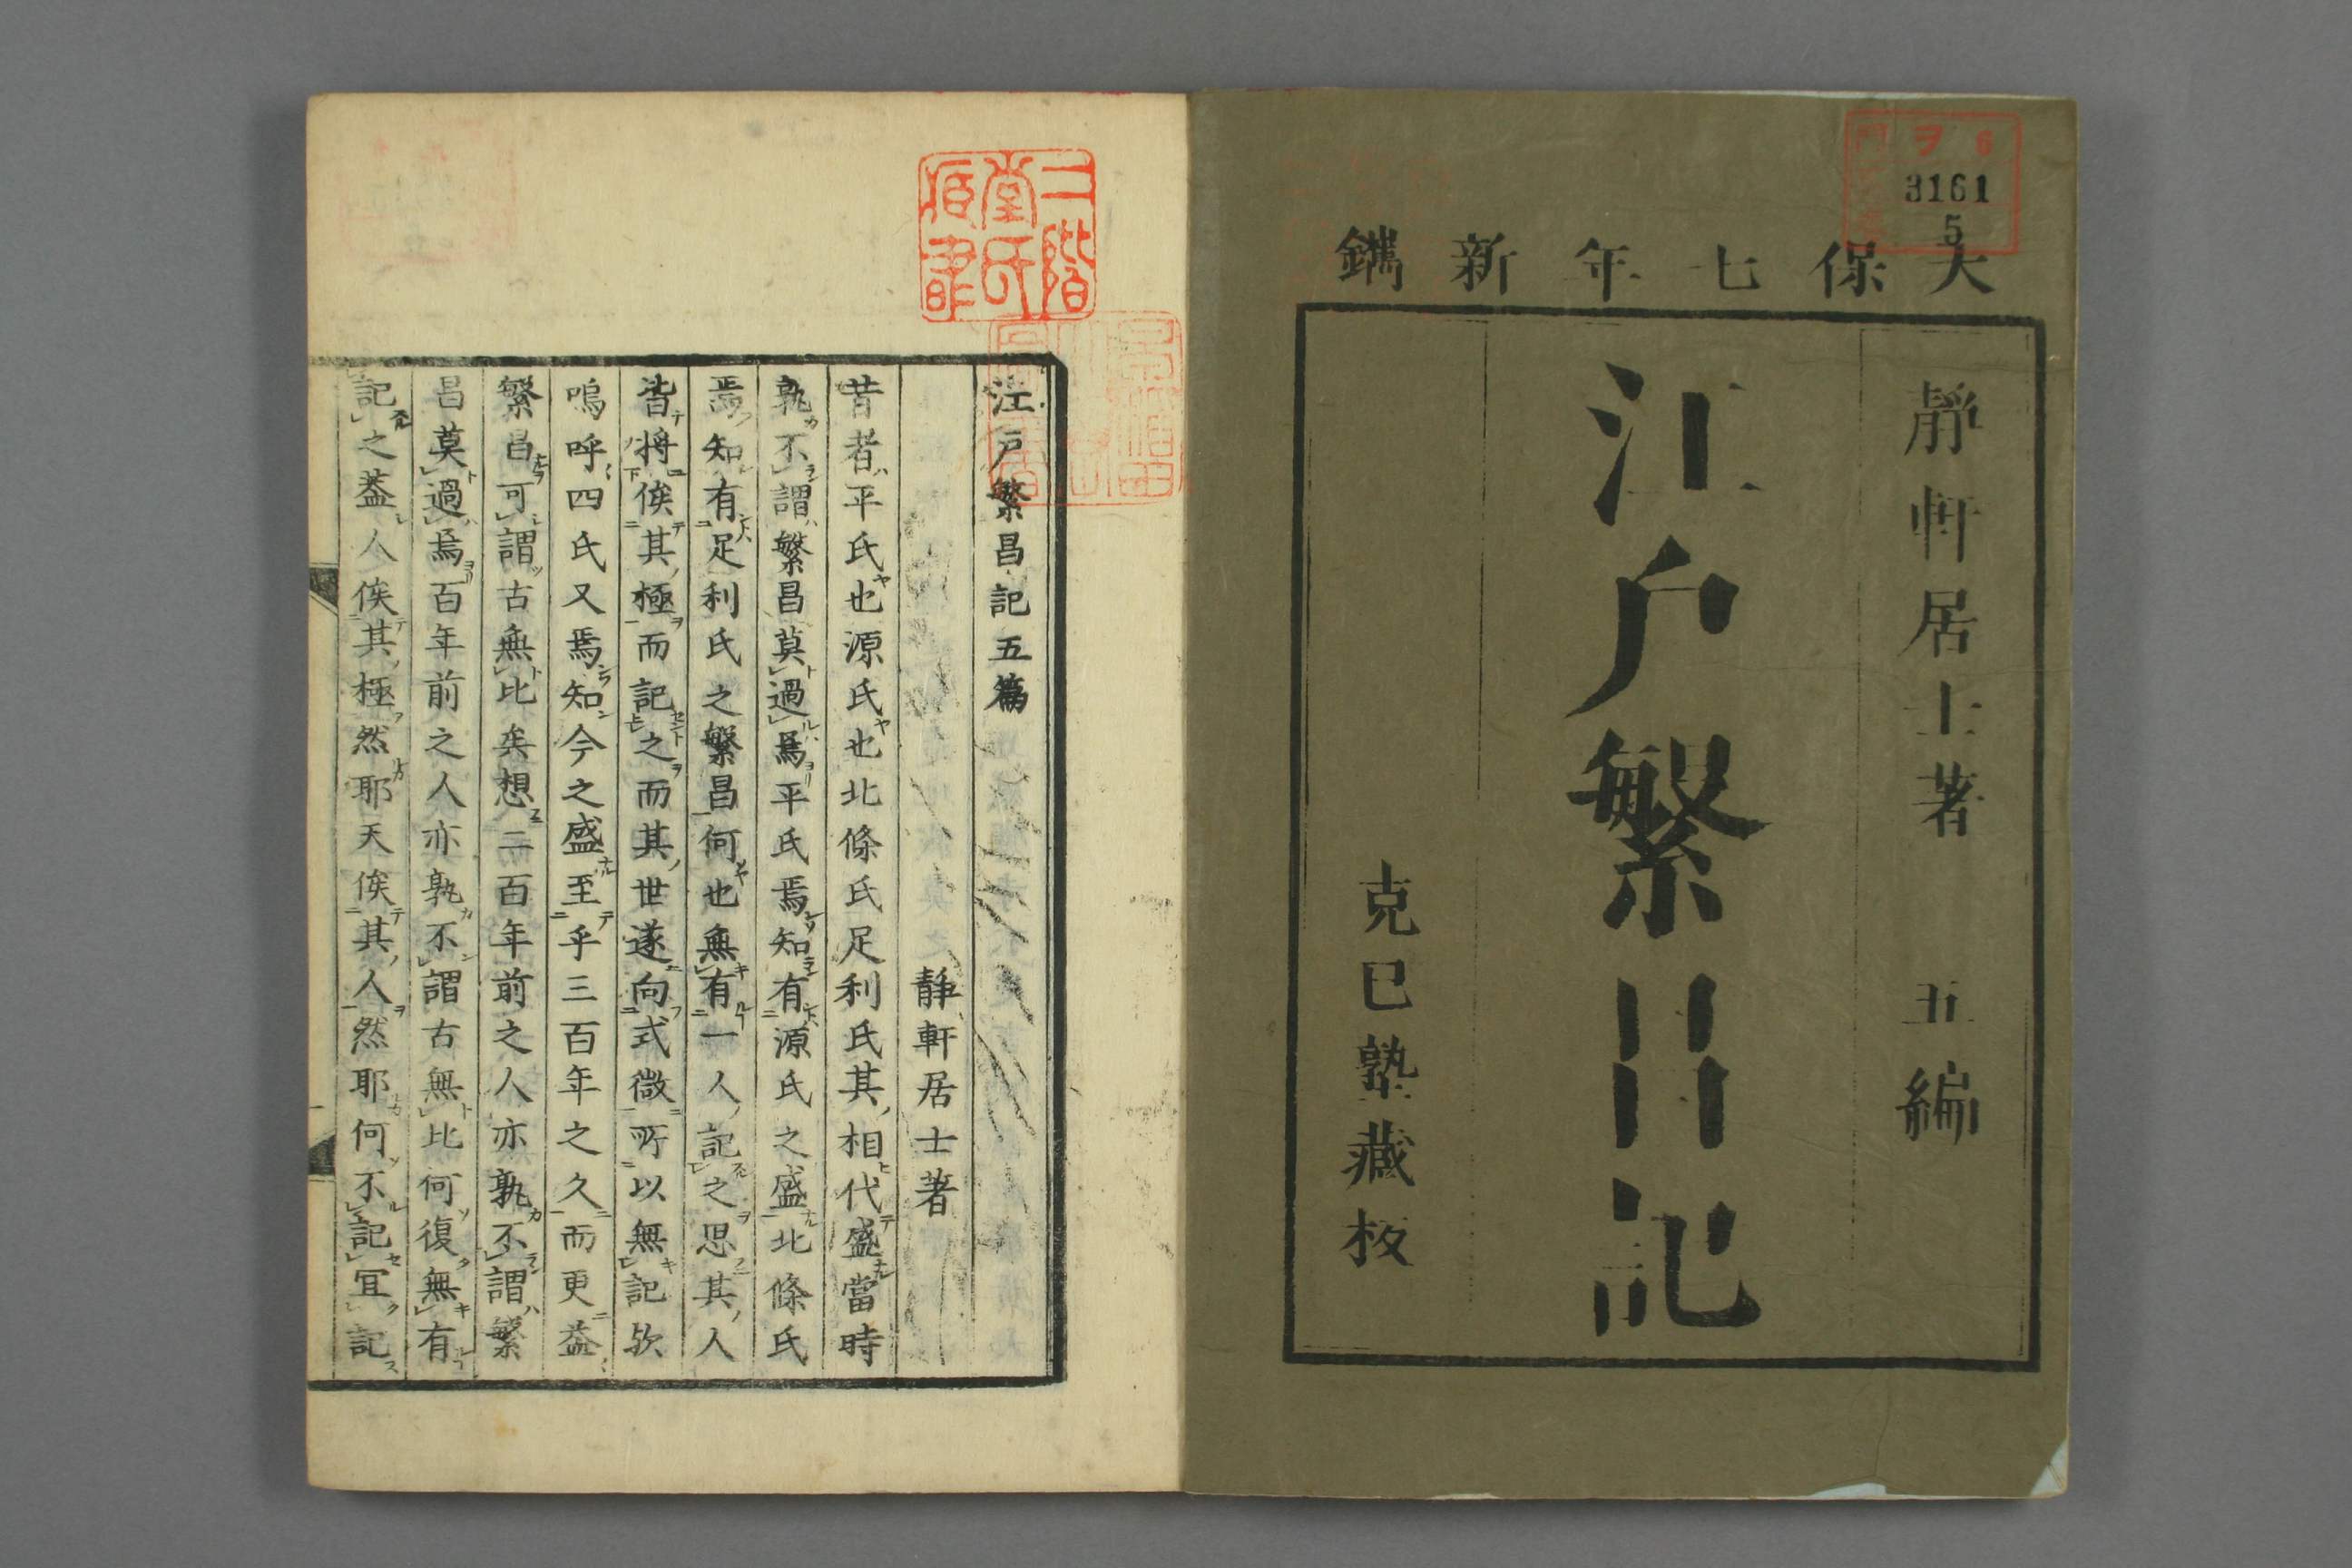 ヲ 6
3161
5
天保七年新鐫
靜軒居士著 五編
江戶繁昌記
克己塾藏板
二階
堂氏
江戶繁昌記五篇
靜軒居士著
昔者平氏也源氏也北條氏足利氏其相代盛當時
孰不謂繁昌莫過焉平氏焉知有源氏之盛北條氏
焉知有足利氏之繁昌何也無有一人記之思其人
皆將俟其極而記之而其世遂向式微所以無記歟
嗚呼四氏又焉知今之盛至乎三百年之久而更益
繁昌可謂古無比矣想二百年前之人亦孰不謂繁
昌莫過焉百年前之人亦孰不謂古無比何復無有
記之蓋人俟其極然耶天俟其人然耶何不記宜記